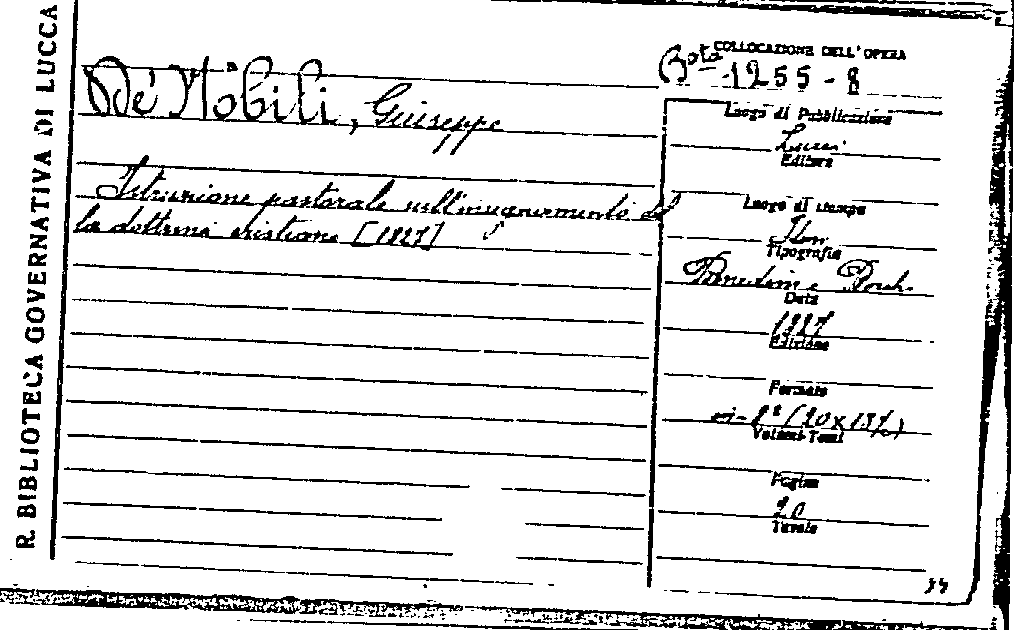 R. BIBLIOTECA GOVERNATIVA DI LUCCA
De' Nobili, Giuseppe
Istruzione pastorale sull'insegnamento del
la dottrina cristiana [1827]
COLLOCAZIONE DELL'OPERA
Bta 1255-8
Luogo di Pubblicazione
Lucca
Editore
Luogo di stampa
Tipografia
Benedini e Rocchi
Data
1827
Edizione
Formato
in-8° (20x13½)
Volumi-Tomi
Pagine
20
Tavole